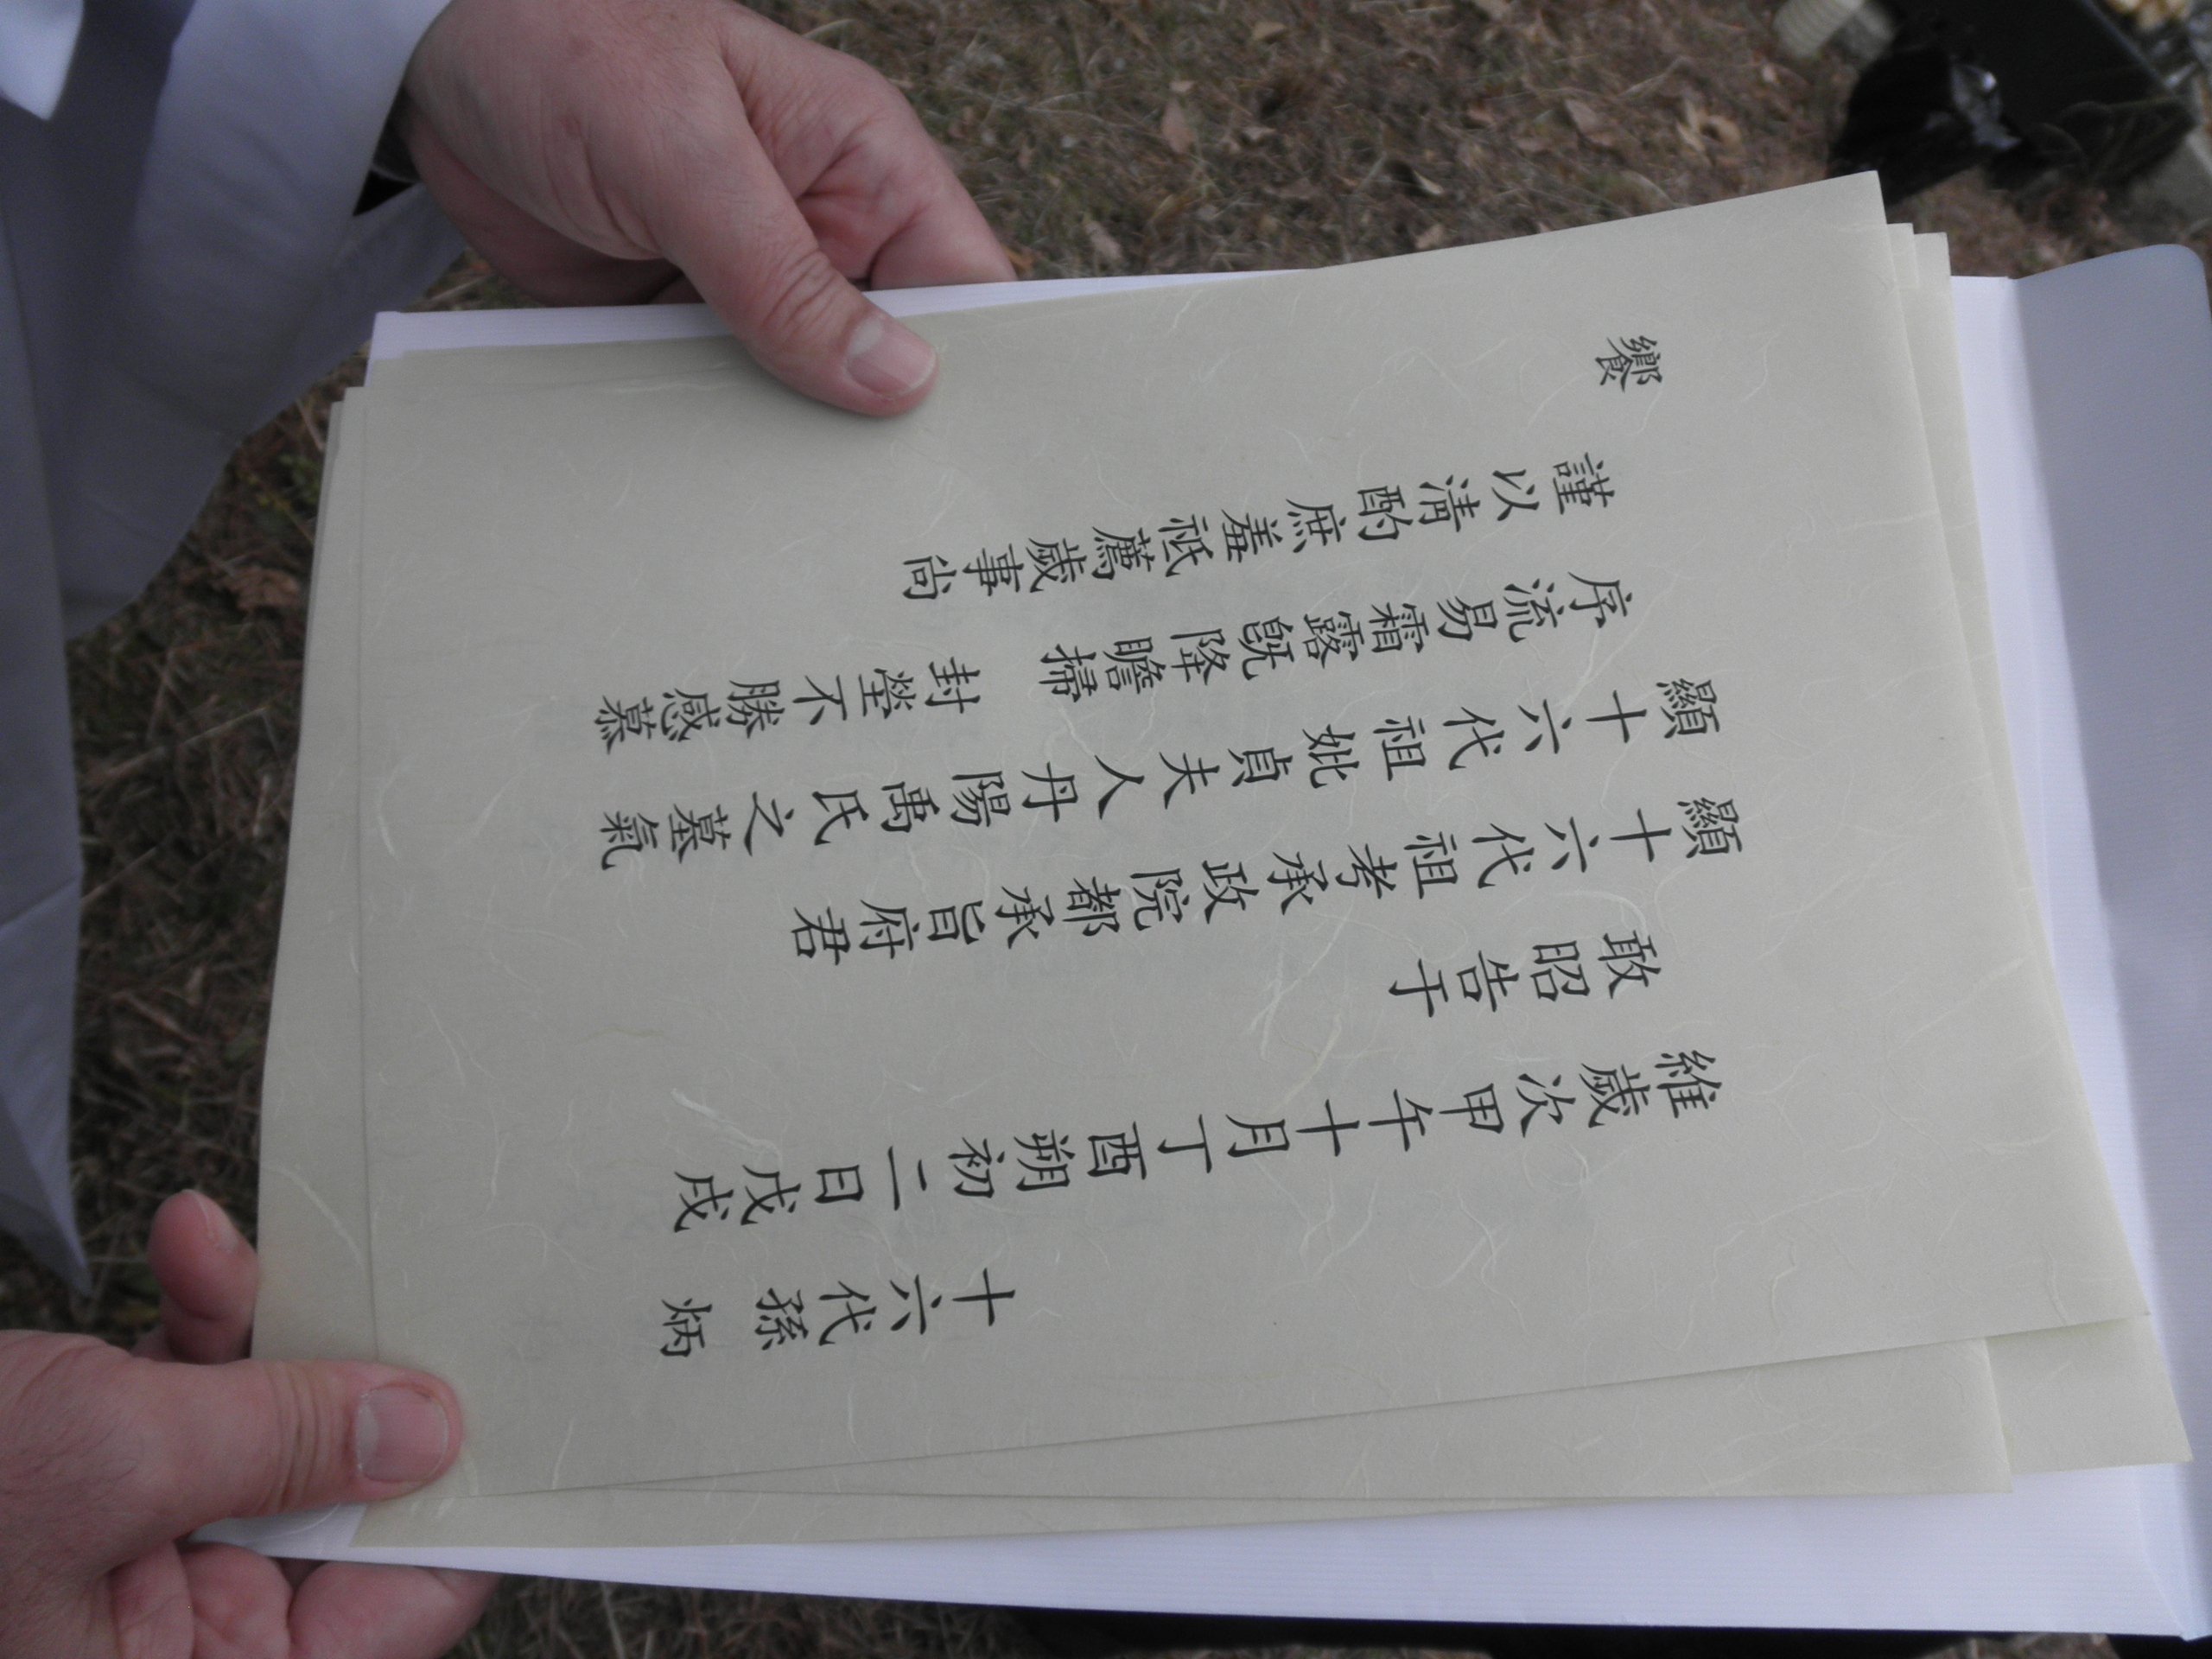 維歲次甲午十月丁酉朔初二日戊戌
十六代孫 炳
敢昭告于
顯十六代祖考承政院都承旨府君
顯十六代祖妣貞夫人丹陽禹氏之墓氣
序流易霜露旣降瞻掃 封塋不勝感慕
謹以淸酌庶羞祗薦歲事尙
饗